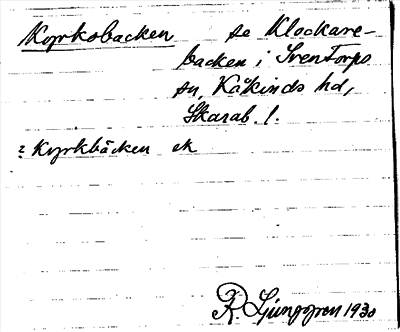 Kyrkobacken se Klockare-
backen i Sventorps
sn, Kåkinds hd,
Skarab. l.
? Kyrkbäcken ek
R. Ljunggren 1930